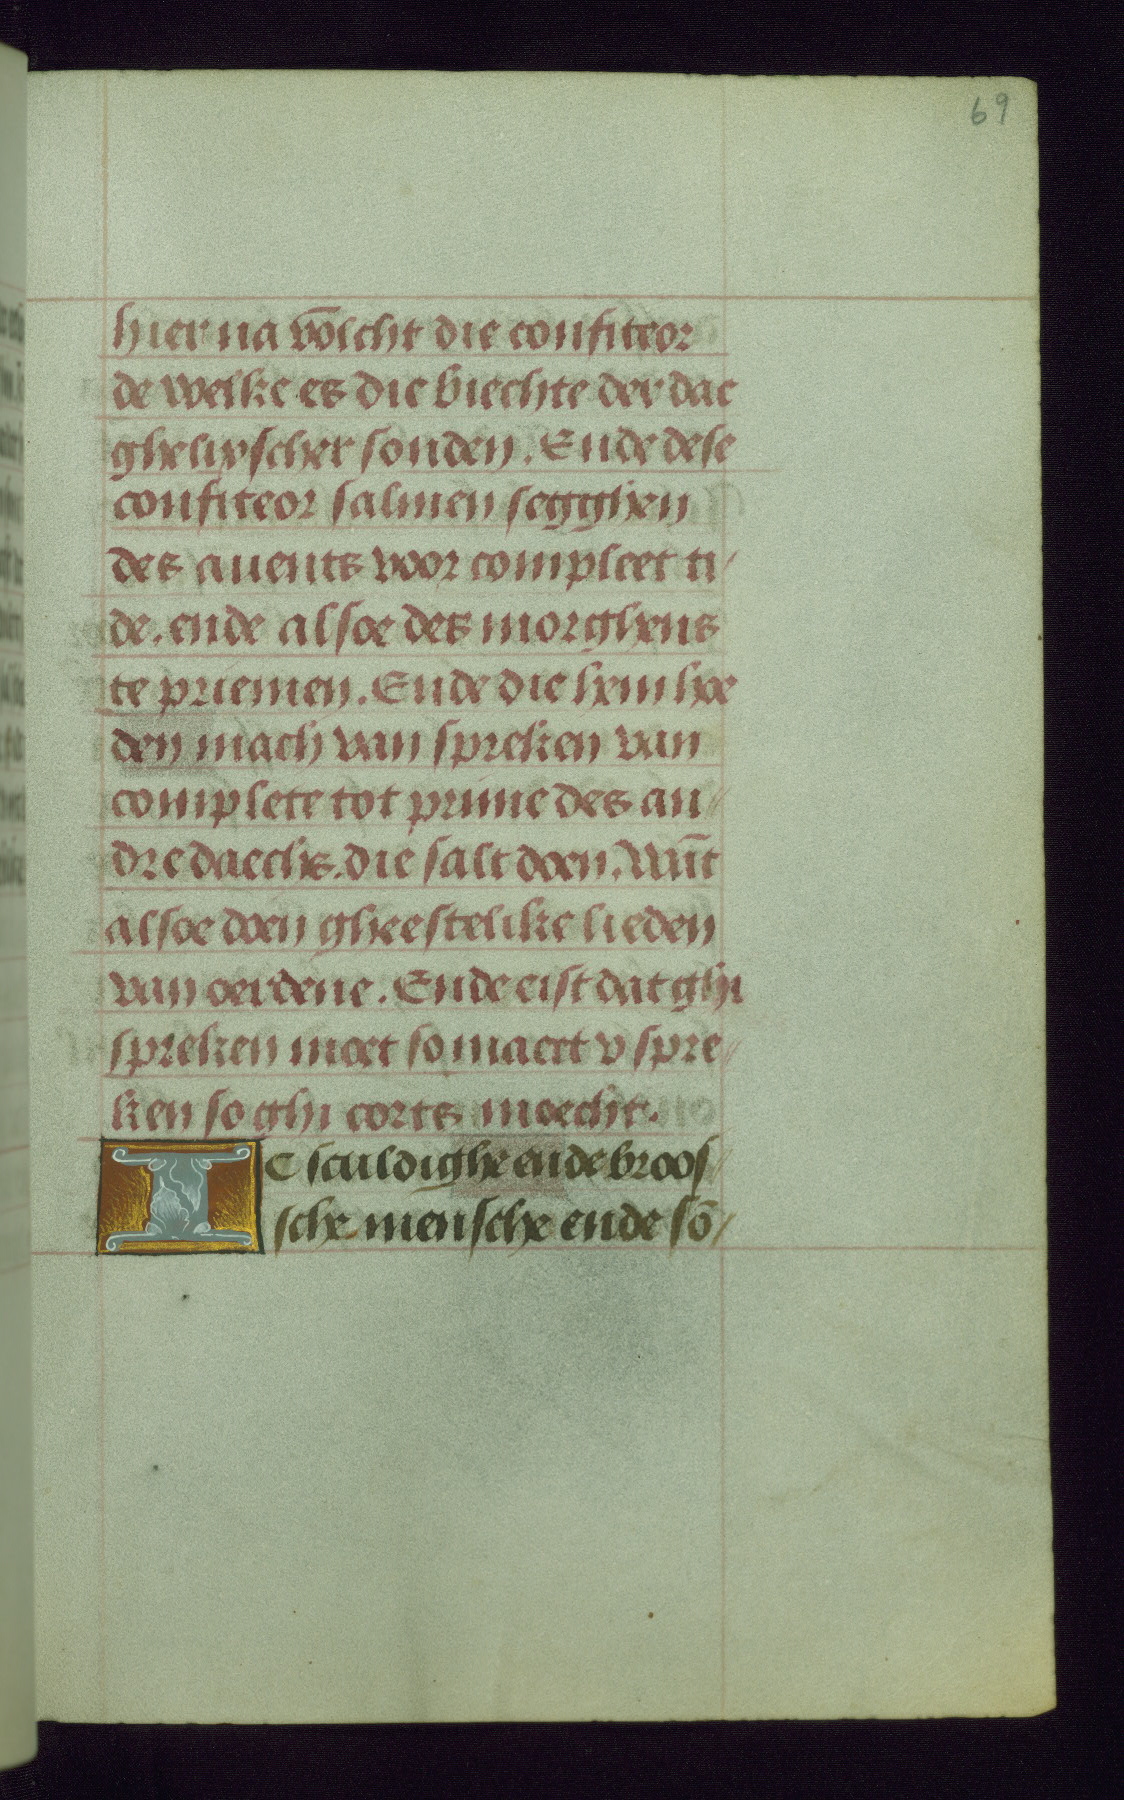 69
hier na võlcht die confiteor
de welke es die biechte der dae
ghelixscher sonden. Ende dese
confiteor salmen segghen
des auents voor compleet ti/
de. ende alsoe des morghens
te priemen. Ende die hem hoe
den mach van spreken van
complete tot prime des an//
dre daechs. die salt doen. Wāt
alsoe doen gheestelike lieden
van oerdene. Ende eist dat ghi
spreken moet so maect v spre//
ken so ghi corts moecht.
Ic sculdighe ende broos//
sche mensche ende sō/